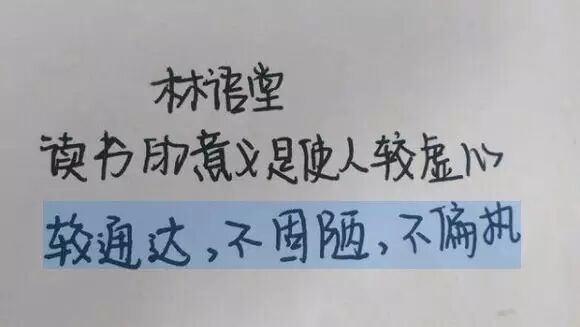 林语堂
读书的意义是使人较虚心
较通达，不固陋，不偏执